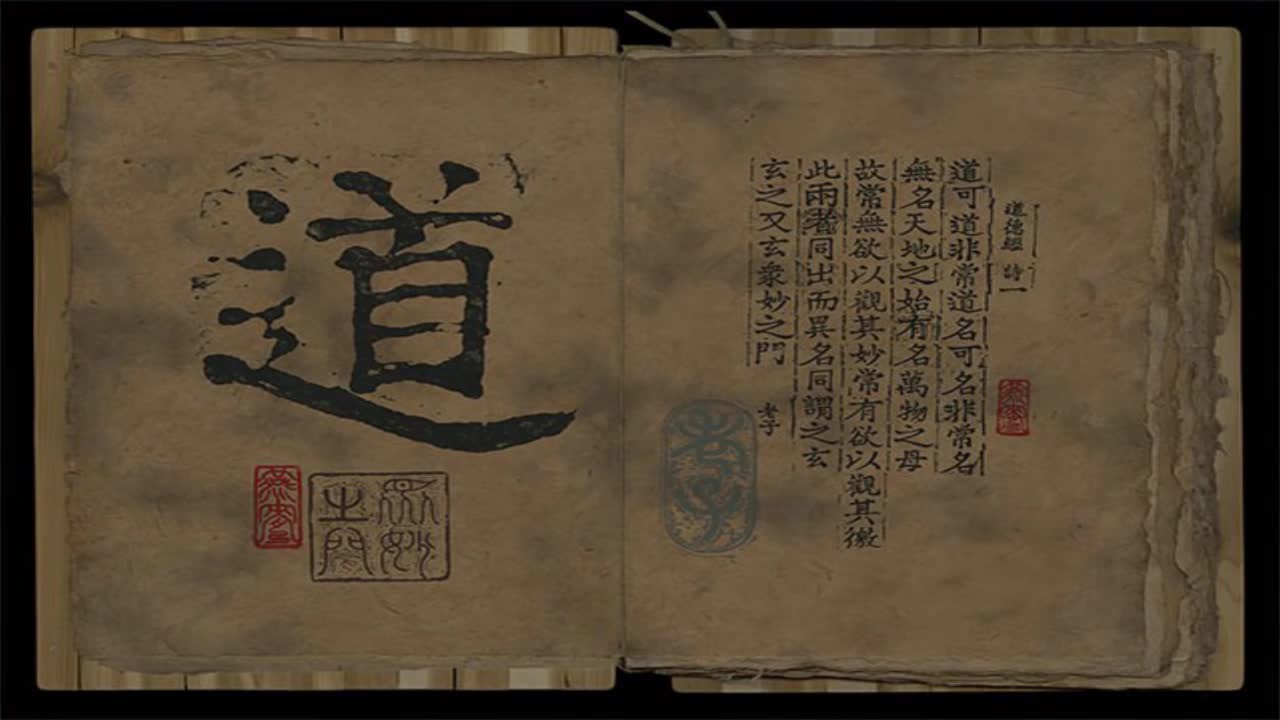 道德經 詩一
道可道非常道名可名非常名
無名天地之始有名萬物之母
故常無欲以觀其妙常有欲以觀其徼
此兩者同出而異名同謂之玄
玄之又玄衆妙之門
老子
道
衆妙
之門